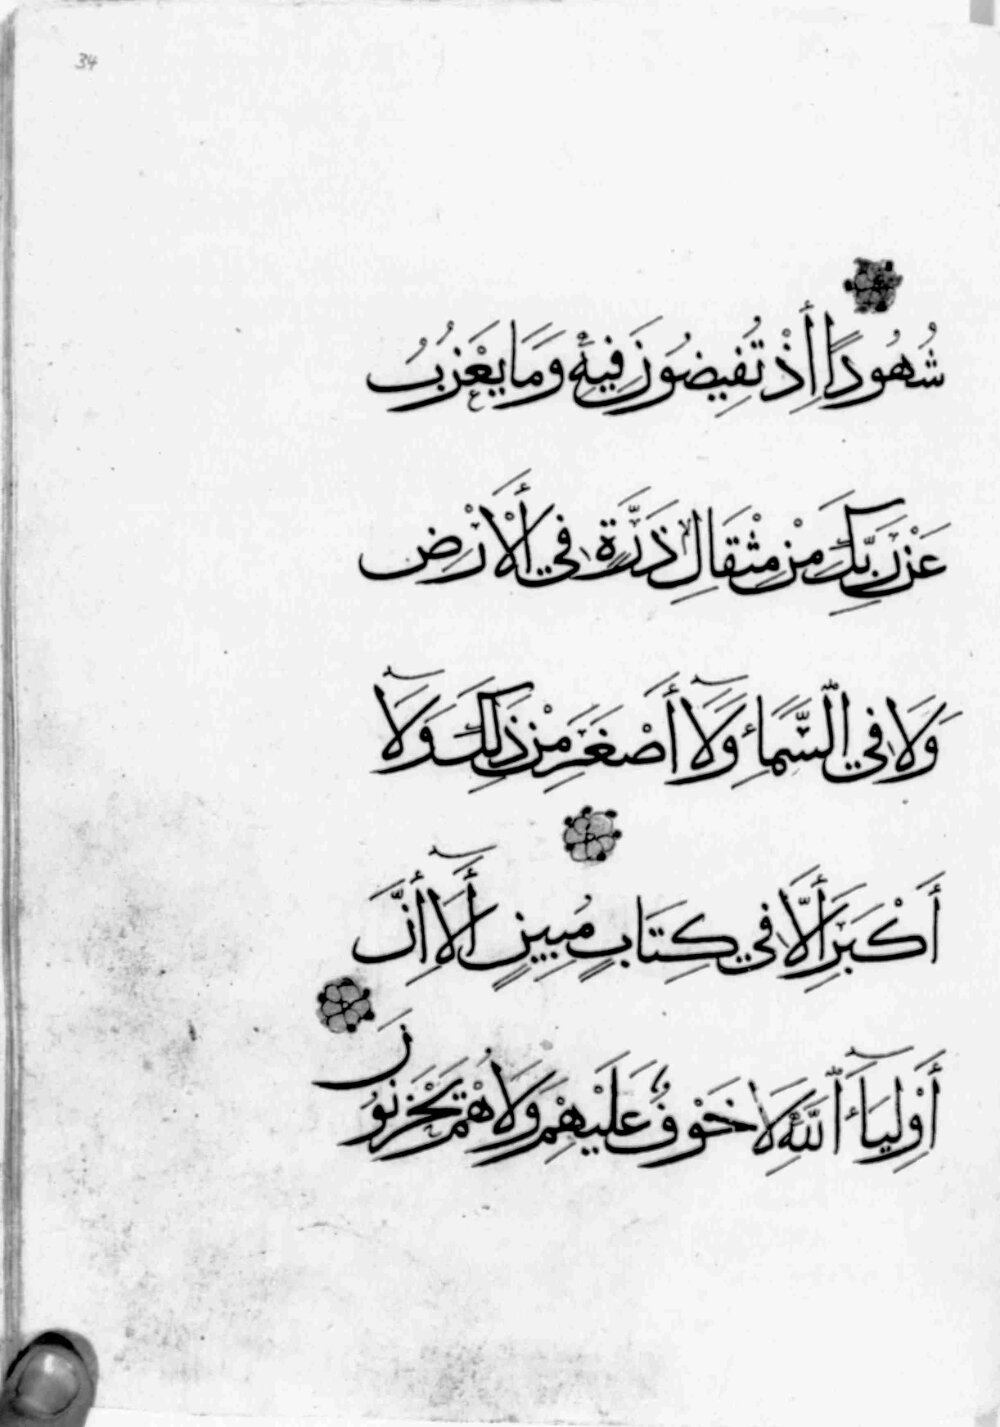 34
شُهُودًا إِذْ تُفِيضُونَ فِيهِ وَمَا يَعْزُبُ
عَنْ رَبِّكَ مِنْ مِثْقَالِ ذَرَّةٍ فِي الْأَرْضِ
وَلَا فِي السَّمَاءِ وَلَا أَصْغَرَ مِنْ ذَلِكَ وَلَا
أَكْبَرَ إِلَّا فِي كِتَابٍ مُبِينٍ أَلَا إِنَّ
أَوْلِيَاءَ اللَّهِ لَا خَوْفٌ عَلَيْهِمْ وَلَا هُمْ يَحْزَنُونَ